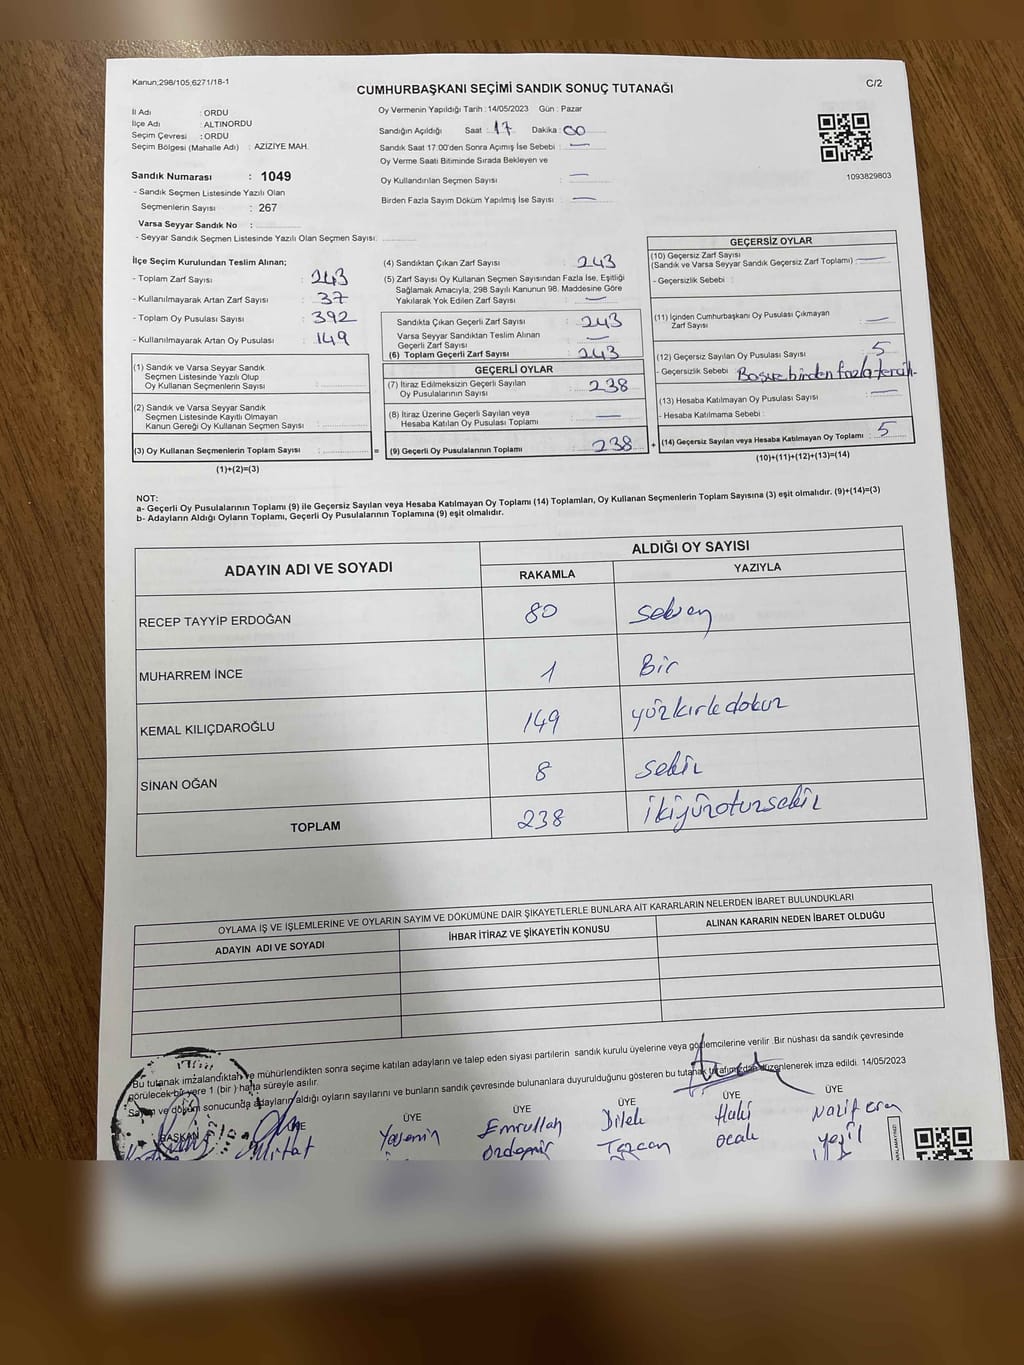 Kanun;298/105;6271/18-1
CUMHURBAŞKANI SEÇİMİ SANDIK SONUÇ TUTANAĞI
C/2
İl Adı : ORDU
İlçe Adı : ALTINORDU
Seçim Çevresi : ORDU
Seçim Bölgesi (Mahalle Adı) : AZİZİYE MAH.
Oy Vermenin Yapıldığı Tarih : 14/05/2023 Gün : Pazar
Sandığın Açıldığı Saat : 17 Dakika : 00
Sandık Saat 17.00'den Sonra Açımış İse Sebebi : —
Oy Verme Saati Bitiminde Sırada Bekleyen ve
Oy Kullandırılan Seçmen Sayısı : —
Birden Fazla Sayım Döküm Yapılmış İse Sayısı : —
1093829803
Sandık Numarası : 1049
- Sandık Seçmen Listesinde Yazılı Olan
Seçmenlerin Sayısı : 267
Varsa Seyyar Sandık No :
- Seyyar Sandık Seçmen Listesinde Yazılı Olan Seçmen Sayısı:
İlçe Seçim Kurulundan Teslim Alınan;
- Toplam Zarf Sayısı : 243
- Kullanılmayarak Artan Zarf Sayısı : 37
- Toplam Oy Pusulası Sayısı : 392
- Kullanılmayarak Artan Oy Pusulası : 149
(1) Sandık ve Varsa Seyyar Sandık
Seçmen Listesinde Yazılı Olup
Oy Kullanan Seçmenlerin Sayısı :
(2) Sandık ve Varsa Seyyar Sandık
Seçmen Listesinde Kayıtlı Olmayan
Kanun Gereği Oy Kullanan Seçmen Sayısı :
(3) Oy Kullanan Seçmenlerin Toplam Sayısı : =
(1)+(2)=(3)
(4) Sandıktan Çıkan Zarf Sayısı : 243
(5) Zarf Sayısı Oy Kullanan Seçmen Sayısından Fazla İse, Eşitliği
Sağlamak Amacıyla, 298 Sayılı Kanunun 98. Maddesine Göre
Yakılarak Yok Edilen Zarf Sayısı : —
Sandıkta Çıkan Geçerli Zarf Sayısı : 243
Varsa Seyyar Sandıktan Teslim Alınan
Geçerli Zarf Sayısı : —
(6) Toplam Geçerli Zarf Sayısı : 243
GEÇERLİ OYLAR
(7) İtiraz Edilmeksizin Geçerli Sayılan
Oy Pusulalarının Sayısı : 238
(8) İtiraz Üzerine Geçerli Sayılan veya
Hesaba Katılan Oy Pusulası Toplamı : —
(9) Geçerli Oy Pusulalarının Toplamı : 238 +
GEÇERSİZ OYLAR
(10) Geçersiz Zarf Sayısı
(Sandık ve Varsa Seyyar Sandık Geçersiz Zarf Toplamı) : —
- Geçersizlik Sebebi :
(11) İçinden Cumhurbaşkanı Oy Pusulası Çıkmayan
Zarf Sayısı : —
(12) Geçersiz Sayılan Oy Pusulası Sayısı : 5
- Geçersizlik Sebebi : birden fazla tercih.
(13) Hesaba Katılmayan Oy Pusulası Sayısı : —
- Hesaba Katılmama Sebebi :
(14) Geçersiz Sayılan veya Hesaba Katılmayan Oy Toplamı : 5
(10)+(11)+(12)+(13)=(14)
NOT:
a- Geçerli Oy Pusulalarının Toplamı (9) ile Geçersiz Sayılan veya Hesaba Katılmayan Oy Toplamı (14) Toplamları, Oy Kullanan Seçmenlerin Toplam Sayısına (3) eşit olmalıdır. (9)+(14)=(3)
b- Adayların Aldığı Oyların Toplamı, Geçerli Oy Pusulalarının Toplamına (9) eşit olmalıdır.
ADAYIN ADI VE SOYADI
ALDIĞI OY SAYISI
RAKAMLA YAZIYLA
RECEP TAYYİP ERDOĞAN 80 seksen
MUHARREM İNCE 1 Bir
KEMAL KILIÇDAROĞLU 149 yüzkırkdokuz
SİNAN OĞAN 8 sekiz
TOPLAM 238 ikiyüzotuzsekiz
OYLAMA İŞ VE İŞLEMLERİNE VE OYLARIN SAYIM VE DÖKÜMÜNE DAİR ŞİKAYETLERLE BUNLARA AİT KARARLARIN NELERDEN İBARET BULUNDUKLARI
ADAYIN ADI VE SOYADI İHBAR İTİRAZ VE ŞİKAYETİN KONUSU ALINAN KARARIN NEDEN İBARET OLDUĞU
Bu tutanak imzalandıktan ve mühürlendikten sonra seçime katılan adayların ve talep eden siyasi partilerin sandık kurulu üyelerine veya gözlemcilerine verilir .Bir nüshası da sandık çevresinde
görülecek bir yere 1 (bir ) hafta süreyle asılır.
Sayım ve döküm sonucunda adayların aldığı oyların sayılarını ve bunların sandık çevresinde bulunanlara duyurulduğunu gösteren bu tutanak tarafımızdan düzenlenerek imza edildi. 14/05/2023
BAŞKAN ÜYE ÜYE ÜYE ÜYE ÜYE
Mitat Yasemin Emrullah Dilek Haki Nazif Eren
Özdemir Tezcan Ocak Yeşil